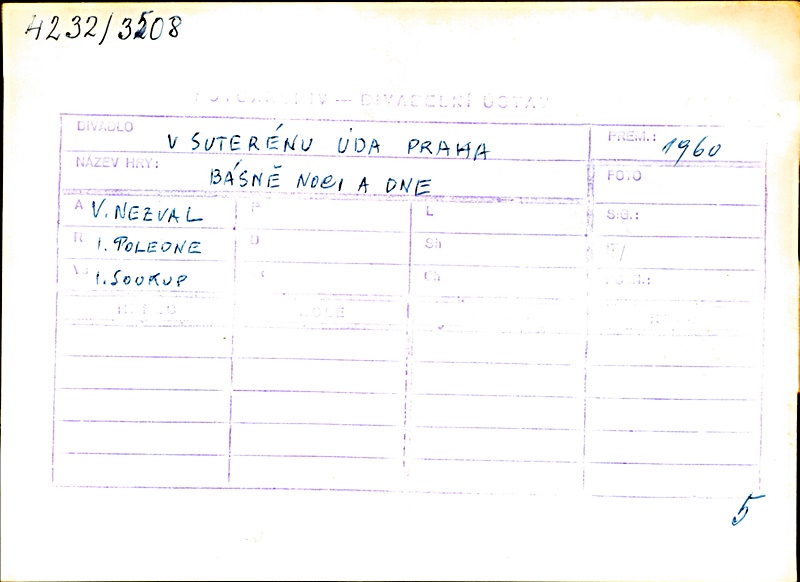 4232/3508
FOTOARCHIV — DIVADELNÍ ÚSTAV
DIVADLO V SUTERÉNU ÚDA PRAHA PREM.: 1960
NÁZEV HRY: BÁSNĚ NOCI A DNE FOTO
A V. NEZVAL P L SIG.:
R I. POLEDNE D Sh F/
I. SOUKUP Ch
ROLE
5